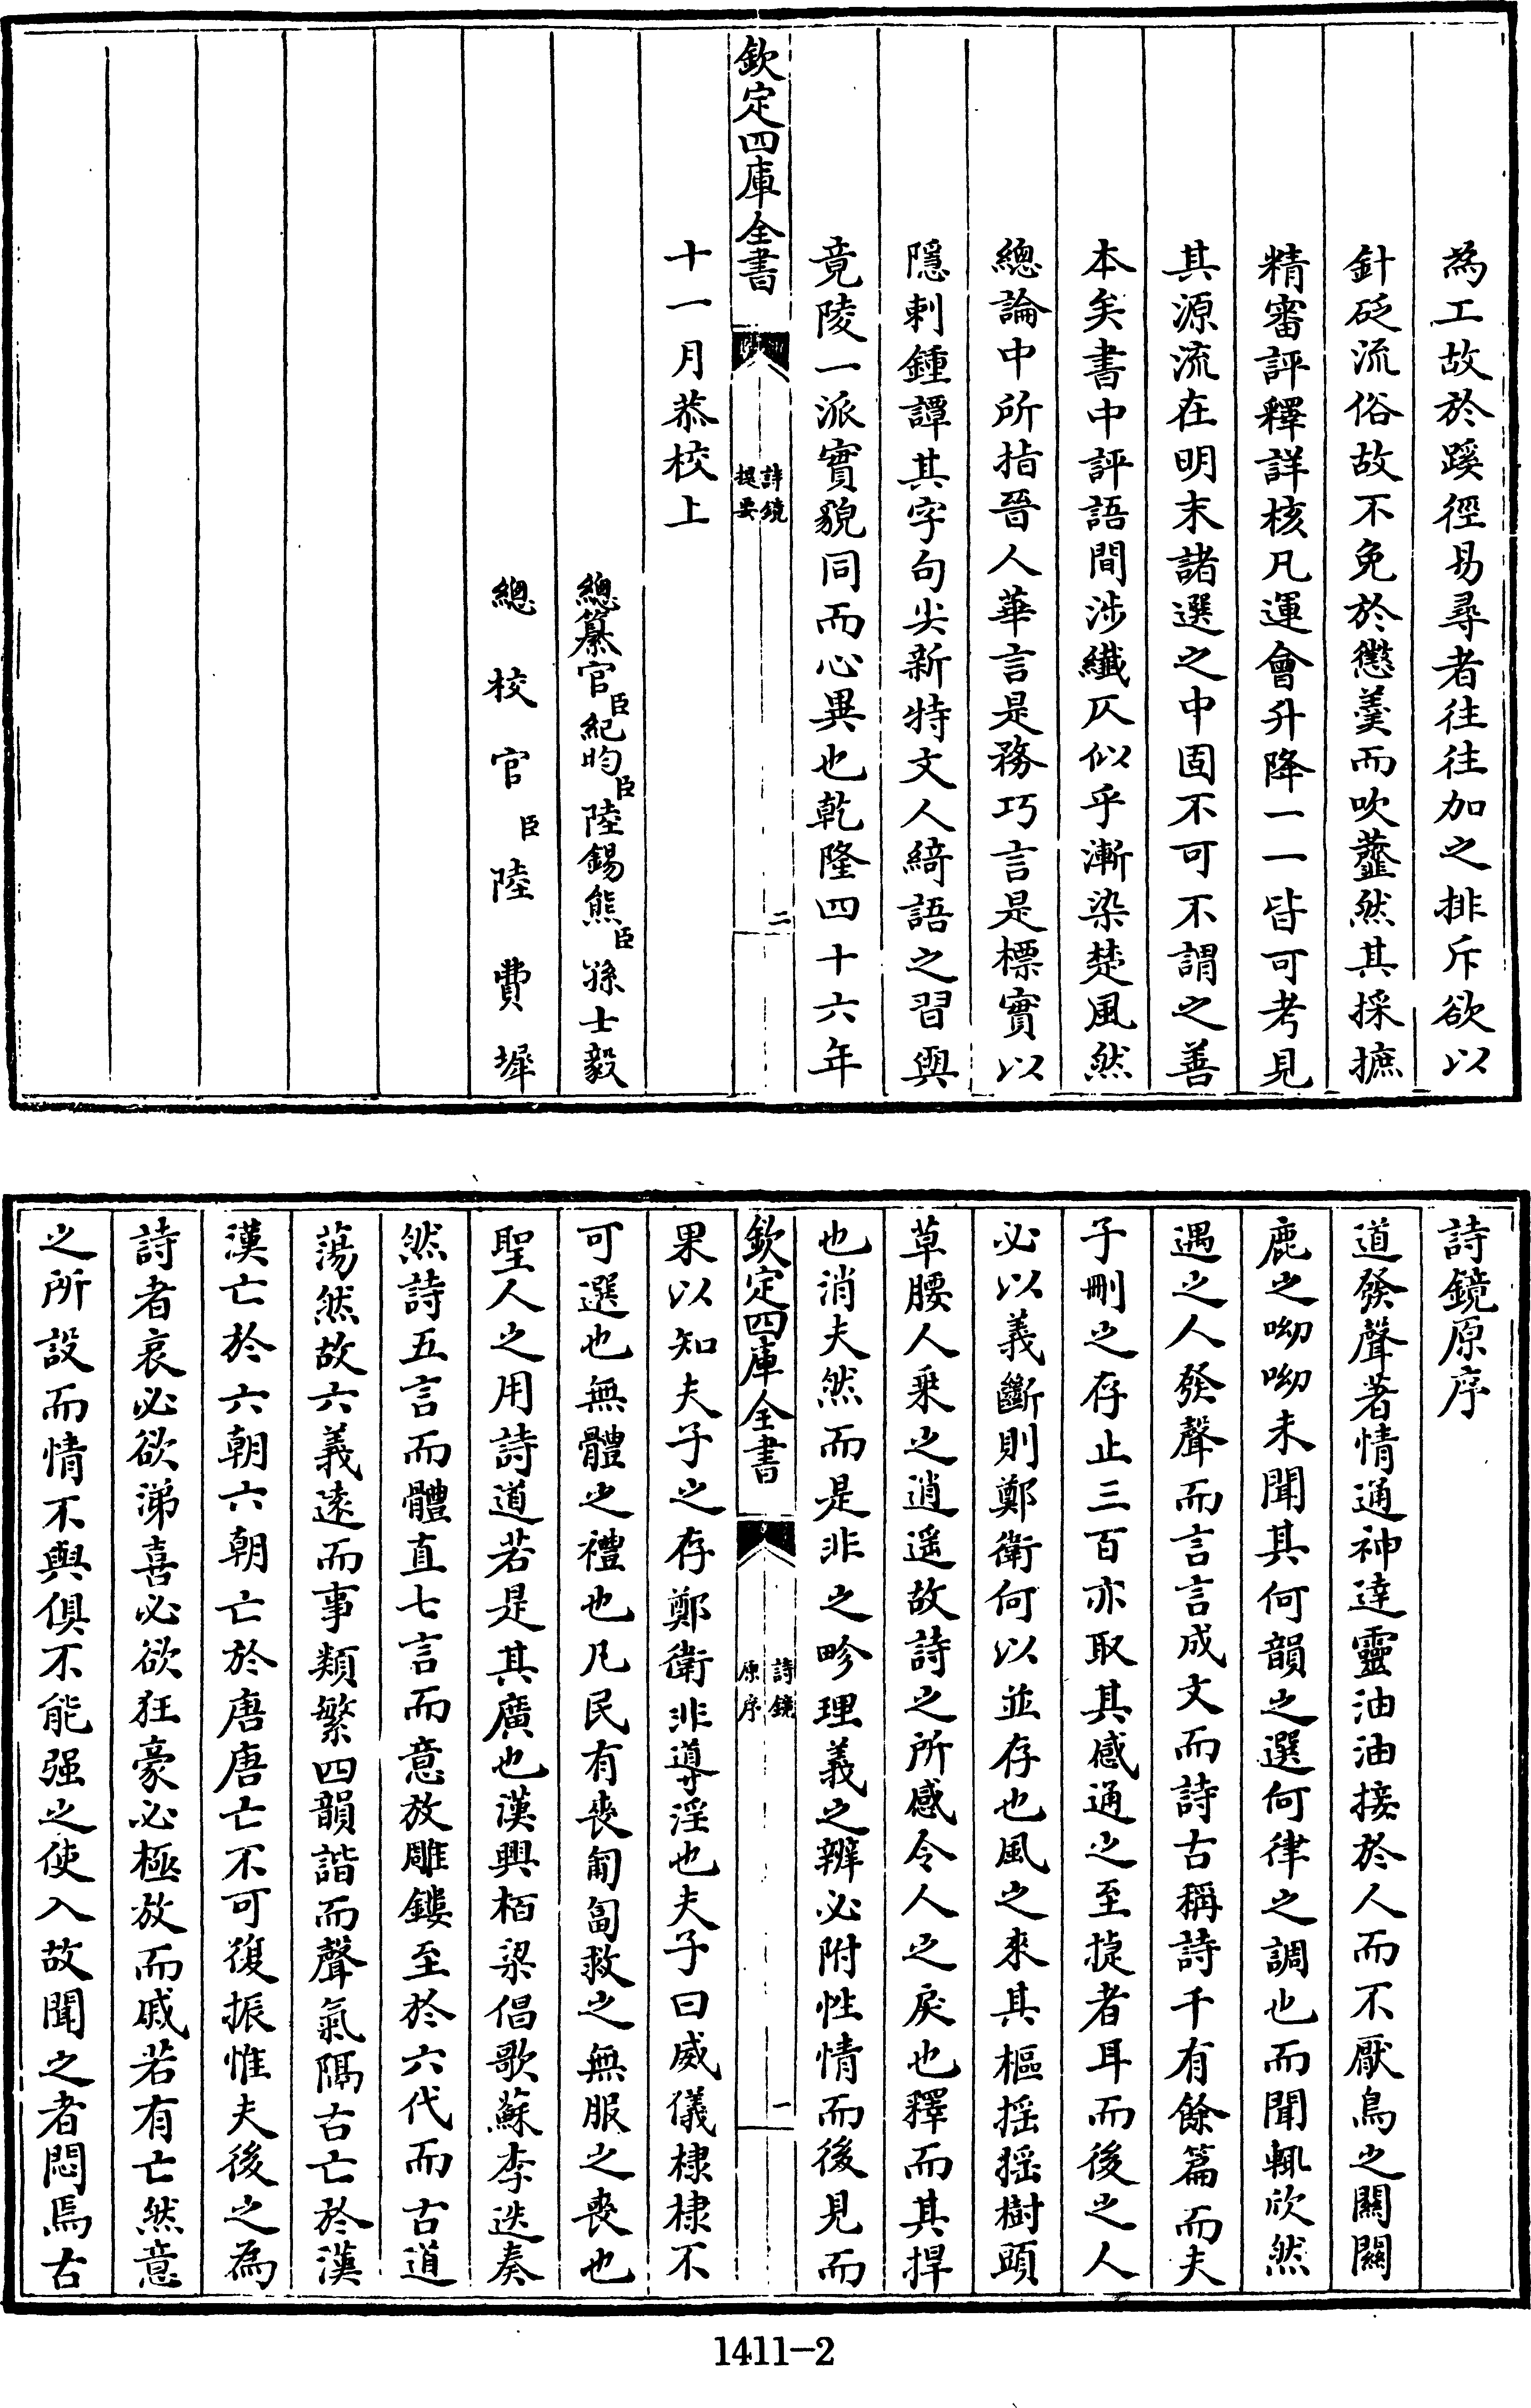 為工故於蹊徑易尋者往往加之排斥欲以
針砭流俗故不免於懲羹而吹虀然其採摭
精審評釋詳核凡運會升降一一皆可考見
其源流在明末諸選之中固不可不謂之善
本矣書中評語間涉纖仄似乎漸染楚風然
總論中所指晉人華言是務巧言是標實以
隱刺鍾譚其字句尖新特文人綺語之習與
竟陵一派實貌同而心異也乾隆四十六年
欽定四庫全書
詩鏡
提要
二
十一月恭校上
總纂官臣紀昀臣陸錫熊臣孫士毅
總校官臣陸費墀
詩鏡原序
道發聲著情通神達靈油油接於人而不厭鳥之關關
鹿之呦呦未聞其何韻之選何律之調也而聞輒欣然
遇之人發聲而言言成文而詩古稱詩千有餘篇而夫
子刪之存止三百亦取其感通之至捷者耳而後之人
必以義斷則鄭衛何以並存也風之來其樞揺揺樹頭
草腰人乗之逍遥故詩之所感令人之戾也釋而其捍
也消夫然而是非之畛理義之辨必附性情而後見而
欽定四庫全書
詩鏡
原序
一
果以知夫子之存鄭衛非導淫也夫子曰威儀棣棣不
可選也無體之禮也凡民有喪匍匐救之無服之喪也
聖人之用詩道若是其廣也漢興栢梁倡歌蘇李迭奏
然詩五言而體直七言而意放雕鏤至於六代而古道
蕩然故六義遠而事類繁四韻諧而聲氣隔古亡於漢
漢亡於六朝六朝亡於唐唐亡不可復振惟夫後之為
詩者哀必欲涕喜必欲狂豪必極放而戚若有亡然意
之所設而情不與俱不能强之使入故聞之者悶焉古
1411-2